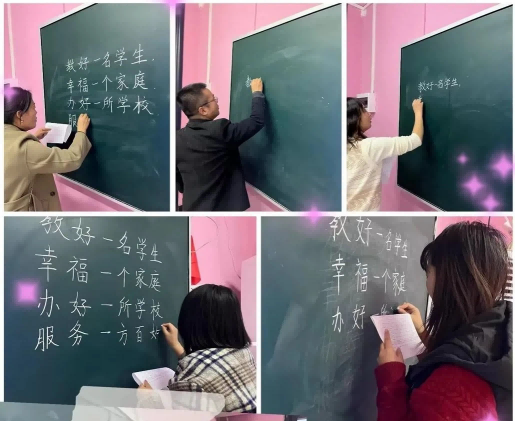 教好一名学生,
幸福一个家庭.
办好一所学校
服
教
教好一名学生,
教好一名学生
幸福一个家庭
办好一所学校
服务一方百
教好一名学生
幸福一个家庭
办好一